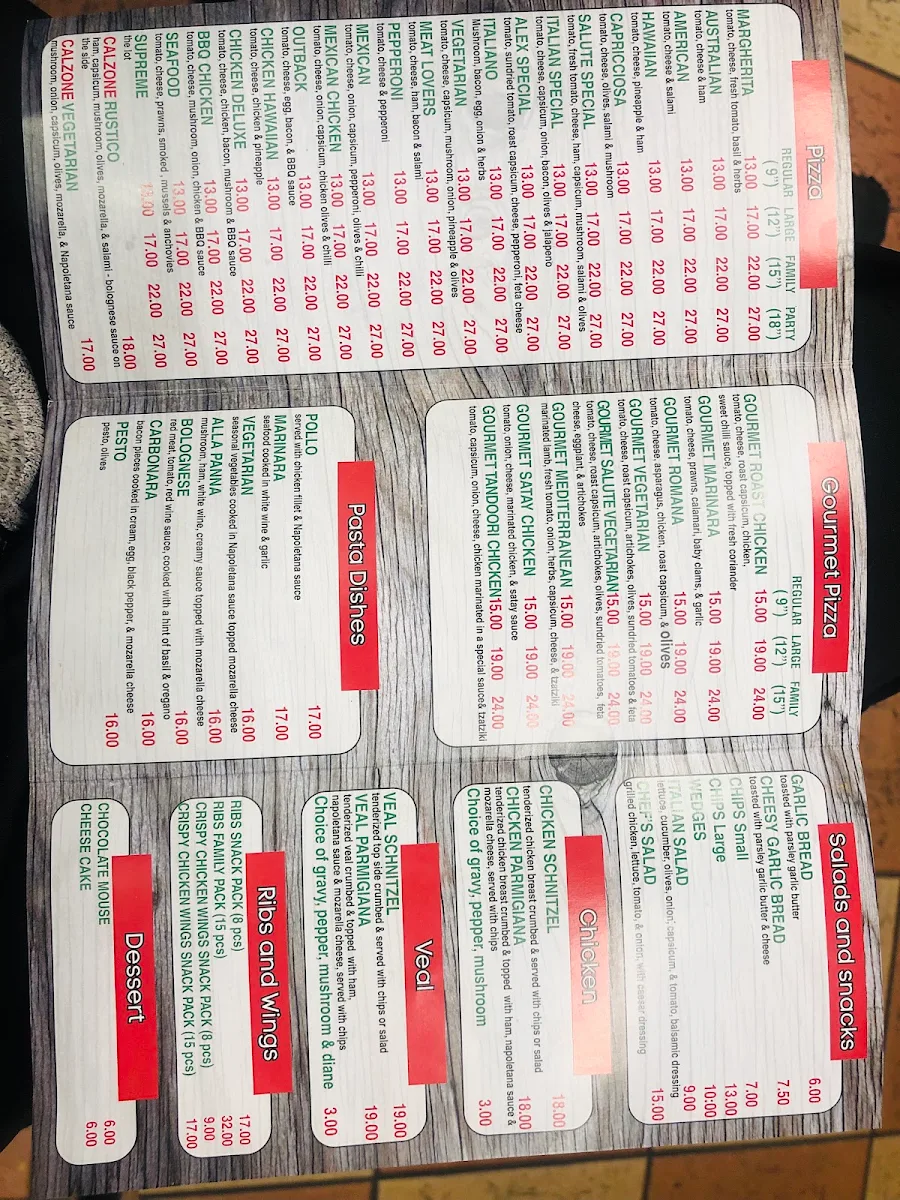 Pizza
REGULAR LARGE FAMILY PARTY
(9") (12") (15") (18")
MARGHERITA 13.00 17.00 22.00 27.00
tomato, cheese, fresh tomato, basil & herbs
AUSTRALIAN 13.00 17.00 22.00 27.00
tomato, cheese & ham
AMERICAN 13.00 17.00 22.00 27.00
tomato, cheese & salami
HAWAIIAN 13.00 17.00 22.00 27.00
tomato, cheese, pineapple & ham
CAPRICCIOSA 13.00 17.00 22.00 27.00
tomato, cheese, olives, salami & mushroom
SALUTE SPECIAL 13.00 17.00 22.00 27.00
tomato, fresh tomato, cheese, ham, capsicum, mushroom, salami & olives
ITALIAN SPECIAL 13.00 17.00 22.00 27.00
tomato, cheese, capsicum, onion, bacon, olives & jalapeno
ALEX SPECIAL 13.00 17.00 22.00 27.00
tomato, sundried tomato, roast capsicum, cheese, pepperoni, feta cheese
ITALIANO 13.00 17.00 22.00 27.00
Mushroom, bacon, egg, onion & herbs
VEGETARIAN 13.00 17.00 22.00 27.00
tomato, cheese, capsicum, mushroom, onion, pineapple & olives
MEAT LOVERS 13.00 17.00 22.00 27.00
tomato, cheese, ham, bacon & salami
PEPPERONI 13.00 17.00 22.00 27.00
tomato, cheese & pepperoni
MEXICAN 13.00 17.00 22.00 27.00
tomato, cheese, onion, capsicum, pepperoni, olives & chilli
MEXICAN CHICKEN 13.00 17.00 22.00 27.00
tomato, cheese, onion, capsicum, chicken olives & chilli
OUTBACK 13.00 17.00 22.00 27.00
tomato, cheese, egg, bacon, & BBQ sauce
CHICKEN HAWAIIAN 13.00 17.00 22.00 27.00
tomato, cheese, chicken & pineapple
CHICKEN DELUXE 13.00 17.00 22.00 27.00
tomato, cheese, chicken, bacon, mushroom & BBQ sauce
BBQ CHICKEN 13.00 17.00 22.00 27.00
tomato, cheese, mushroom, onion, chicken & BBQ sauce
SEAFOOD 13.00 17.00 22.00 27.00
tomato, cheese, prawns, smoked, mussels & anchovies
SUPREME 13.00 17.00 22.00 27.00
the lot
CALZONE RUSTICO 18.00
ham, capsicum, mushroom, olives, mozarella, & salami - bolognese sauce on
the side
CALZONE VEGETARIAN 17.00
mushroom, onion, capsicum, olives, mozarella, & Napoletana sauce
Gourmet Pizza
REGULAR LARGE FAMILY
(9") (12") (15")
GOURMET ROAST CHICKEN 15.00 19.00 24.00
tomato, cheese, roast capsicum, chicken,
sweet chilli sauce, topped with fresh coriander
GOURMET MARINARA 15.00 19.00 24.00
tomato, cheese, prawns, calamari, baby clams, & garlic
GOURMET ROMANA 15.00 19.00 24.00
tomato, cheese, asparagus, chicken, roast capsicum, & olives
GOURMET VEGETARIAN 15.00 19.00 24.00
tomato, cheese, roast capsicum, artichokes, olives, sundried tomatoes & feta
GOURMET SALUTE VEGETARIAN 15.00 19.00 24.00
tomato, cheese, roast capsicum, artichokes, olives, sundried tomatoes, feta
cheese, eggplant, & artichokes
GOURMET MEDITERRANEAN 15.00 19.00 24.00
marinated lamb, fresh tomato, onion, herbs, capsicum, cheese, & tzatziki
GOURMET SATAY CHICKEN 15.00 19.00 24.00
tomato, onion, cheese, marinated chicken, & satay sauce
GOURMET TANDOORI CHICKEN 15.00 19.00 24.00
tomato, capsicum, onion, cheese, chicken marinated in a special sauce& tzatziki
Pasta Dishes
POLLO 17.00
served with chicken fillet & Napoletana sauce
MARINARA 17.00
seafood cooked in white wine & garlic
VEGETARIAN 16.00
seasonal vegetables cooked in Napoletana sauce topped mozarella cheese
ALLA PANNA 16.00
mushroom, ham, white wine, creamy sauce topped with mozarella cheese
BOLOGNESE 16.00
red meat, tomato, red wine sauce, cooked with a hint of basil & oregano
CARBONARA 16.00
bacon pieces cooked in cream, egg, black pepper, & mozarella cheese
PESTO 16.00
pesto, olives
Salads and snacks
GARLIC BREAD 6.00
toasted with parsley garlic butter
CHEESY GARLIC BREAD 7.50
toasted with parsley garlic butter & cheese
CHIPS Small 7.00
CHIPS Large 13.00
WEDGES 10:00
ITALIAN SALAD 9.00
lettuce, cucumber, olives, onion, capsicum, & tomato, balsamic dressing
CHEF'S SALAD 15.00
grilled chicken, lettuce, tomato, & onion, with caeser dressing
Chicken
CHICKEN SCHNITZEL 18.00
tenderized chicken breast crumbed & served with chips or salad
CHICKEN PARMIGIANA 18.00
tenderized chicken breast crumbed & topped with ham, napoletana sauce &
mozarella cheese, served with chips
Choice of gravy, pepper, mushroom 3.00
Veal
VEAL SCHNITZEL 19.00
tenderized top side crumbed & served with chips or salad
VEAL PARMIGIANA 19.00
tenderized veal crumbed & topped with ham,
napoletana sauce & mozarella cheese, served with chips
Choice of gravy, pepper, mushroom & diane 3.00
Ribs and Wings
RIBS SNACK PACK (8 pcs) 17.00
RIBS FAMILY PACK (15 pcs) 32.00
CRISPY CHICKEN WINGS SNACK PACK (8 pcs) 9.00
CRISPY CHICKEN WINGS SNACK PACK (15 pcs) 17.00
Dessert
CHOCOLATE MOUSE 6.00
CHEESE CAKE 6.00